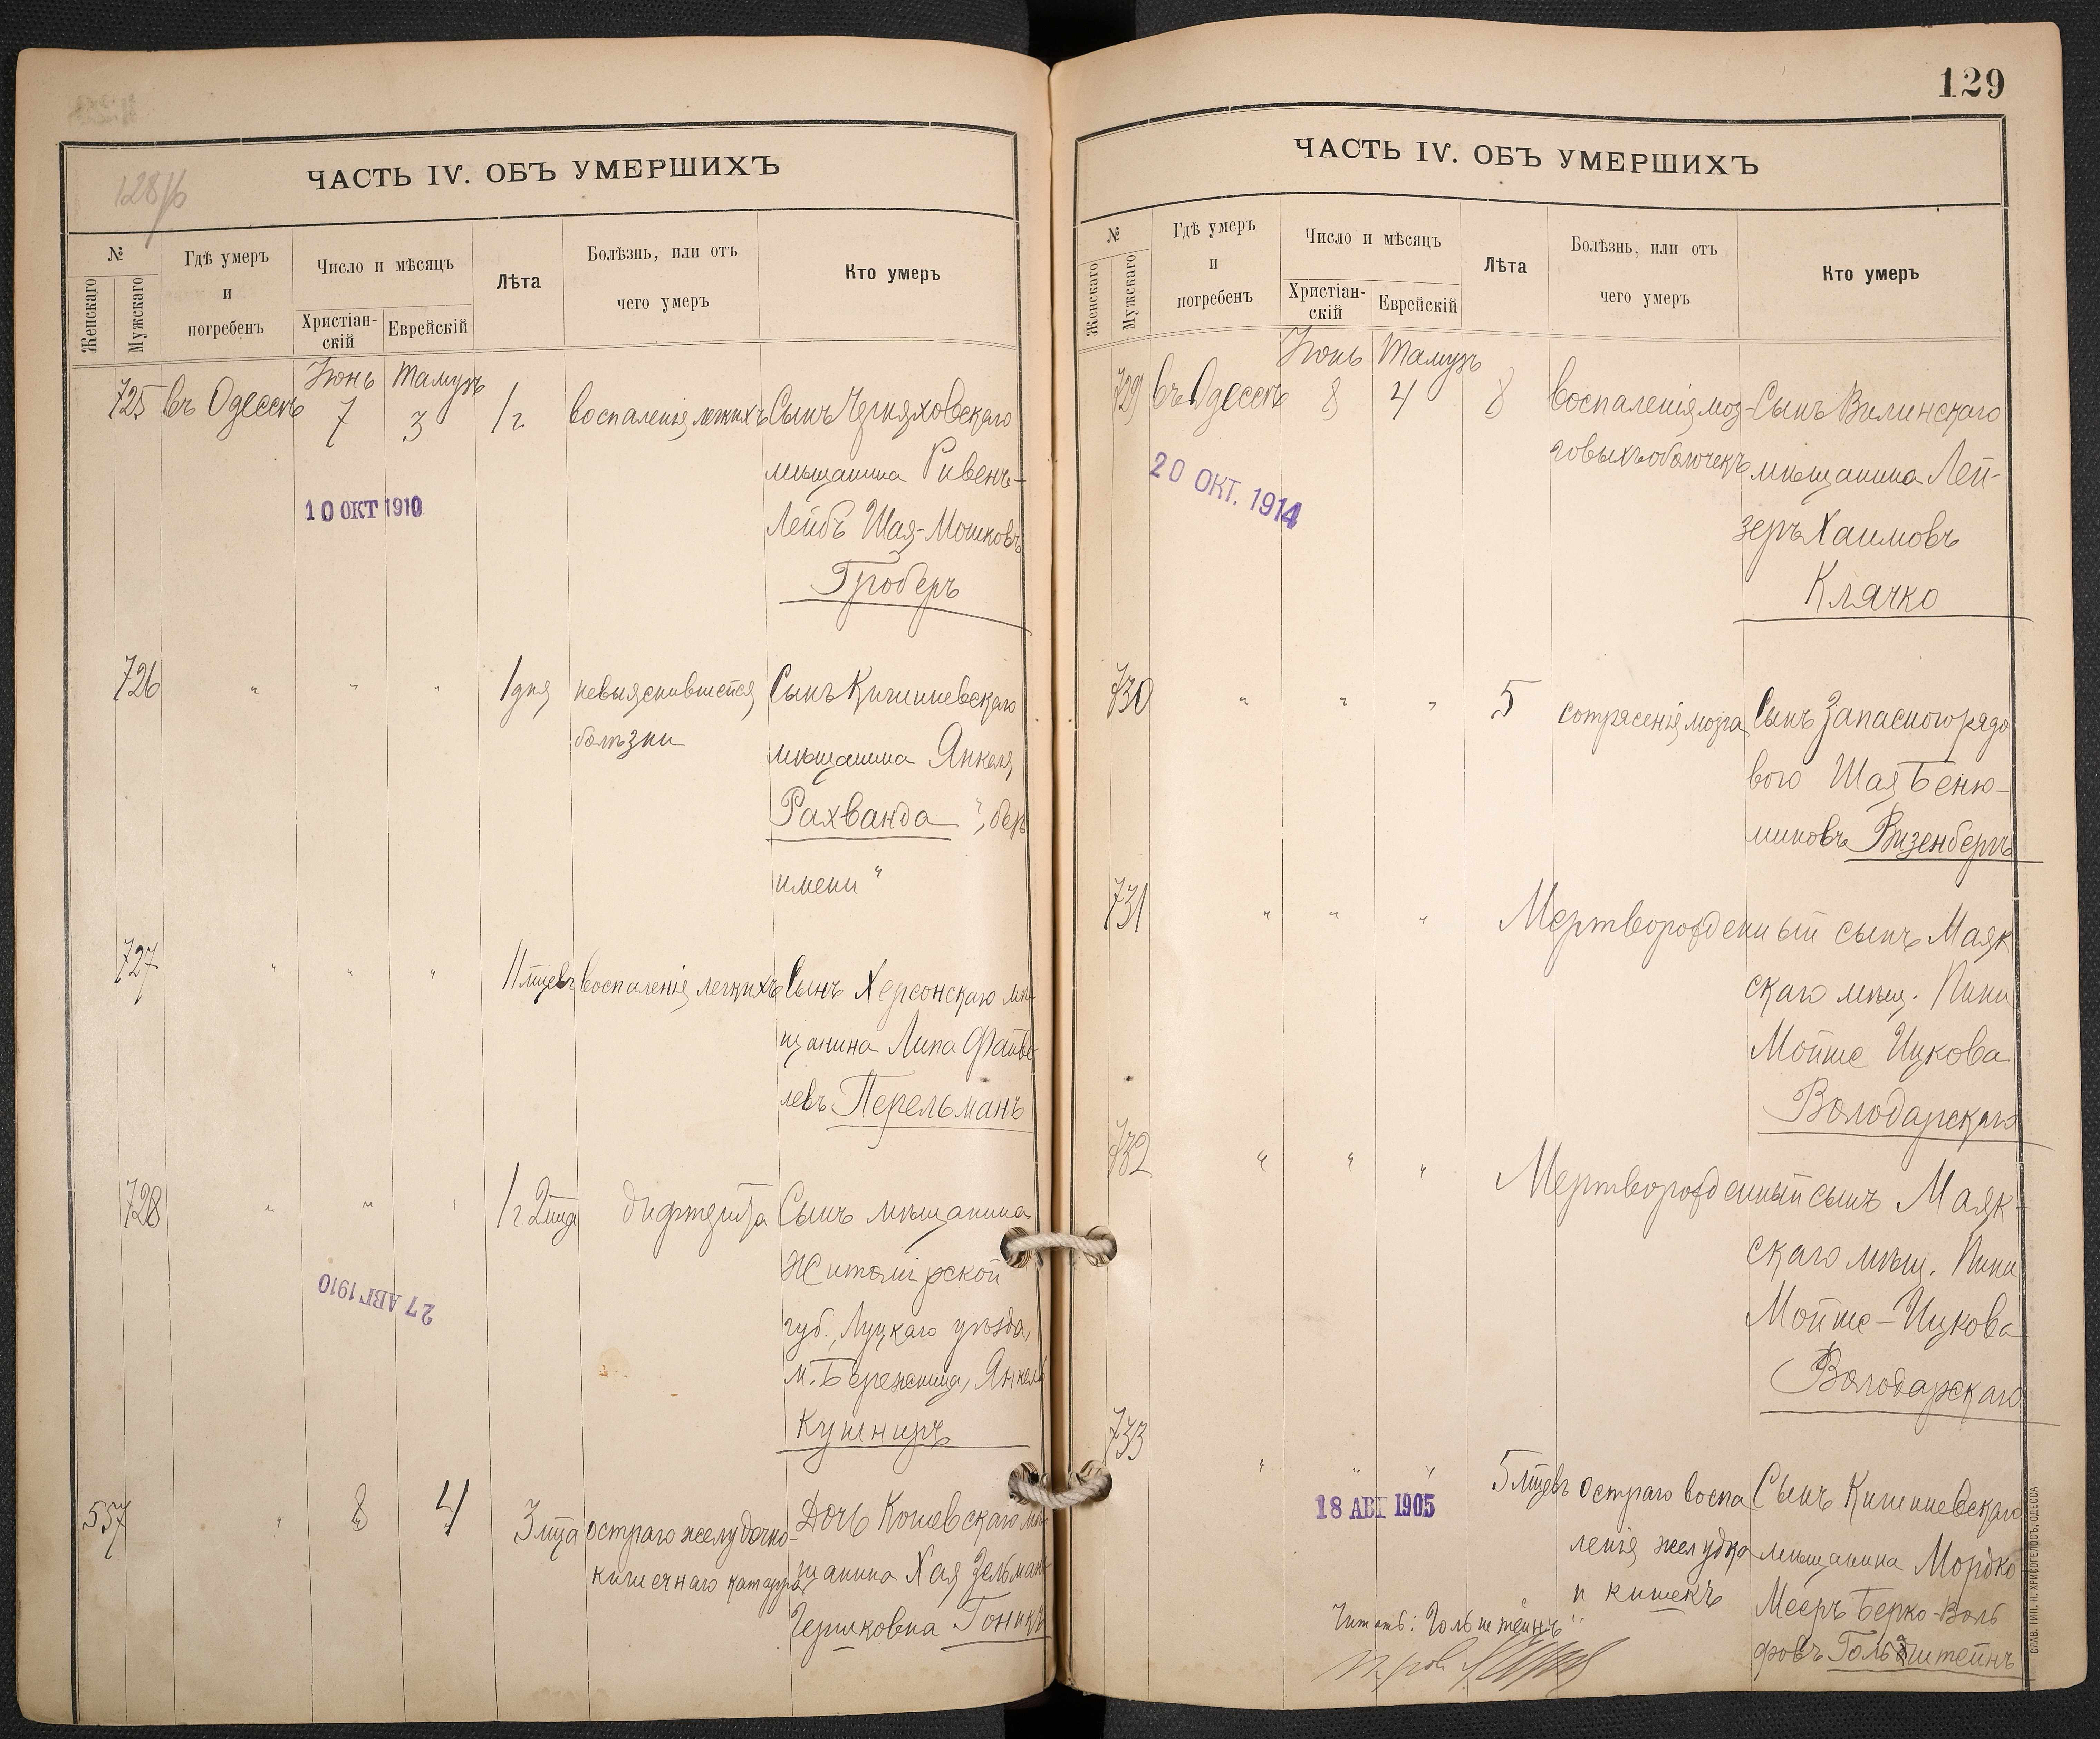 128/b
ЧАСТЬ IV. ОБЪ УМЕРШИХЪ
№
Женскаго
Мужскаго
Гдѣ умеръ
и
погребенъ
Число и мѣсяцъ
Христіан-
скій
Еврейскій
Лѣта
Болѣзнь, или отъ
чего умеръ
Кто умеръ
Іюнь Тамузъ
725 въ Одессѣ 7 3 1 г. воспаленія легкихъ Сынъ Черняховскаго
мѣщанина Рувенъ-
Лейбъ Шая-Мошковъ
Гроберъ
10 ОКТ 1910
726 " " " 1 дня невыяснившейся Сынъ Кишиневскаго
болѣзни
мѣщанина Янкеля
Рахванда "безъ
имени"
727 " " " 11 мцевъ воспаленія легкихъ Сынъ Херсонскаго мѣ-
щанина Липа Файве-
левъ Перельманъ
728 " " " 1 г. 2 мца дифтерита Сынъ мѣщанина
Житомірской
губ., Луцкаго уѣзда,
м. Бережница, Янкель
Кушниръ
27 АВГ 1910
557 " 8 4 3 мца остраго желудочно- Дочь Кошевскаго мѣ-
кишечнаго катарра щанина Хая Зельман-
Гершковна Гоникъ
129
ЧАСТЬ IV. ОБЪ УМЕРШИХЪ
№
Женскаго
Мужскаго
Гдѣ умеръ
и
погребенъ
Число и мѣсяцъ
Христіан-
скій
Еврейскій
Лѣта
Болѣзнь, или отъ
чего умеръ
Кто умеръ
Іюнь Тамузъ
729 въ Одессѣ 8 4 8 воспаленія моз- Сынъ Вилинскаго
говыхъ оболочекъ мѣщанина Лей-
зеръ Хаимовъ
Клячко
20 ОКТ. 1914
730 " " " 5 сотрясенія мозга Сынъ запасного рядо
вого Шая Беню-
миновъ Визенбергъ
731 " " " Мертворожденный сынъ Маяк
скаго мѣщ. Пини
Мойше Ицкова
Володарскаго
732 " " " Мертворожденный сынъ Маяк-
скаго мѣщ. Пини
Мойше-Ицкова
Володарскаго
733 " " " 5 мцевъ остраго воспа Сынъ Кишиневскаго
ленія желудка мѣщанина Мордко
и кишекъ Мееръ Берко-Воль
фовъ Гольштейнъ
18 АВГ 1905
Читать: "Гольштейнъ"
СЛАВ. ТИП. Н. ХРИСОГЕЛОСЪ, ОДЕССА